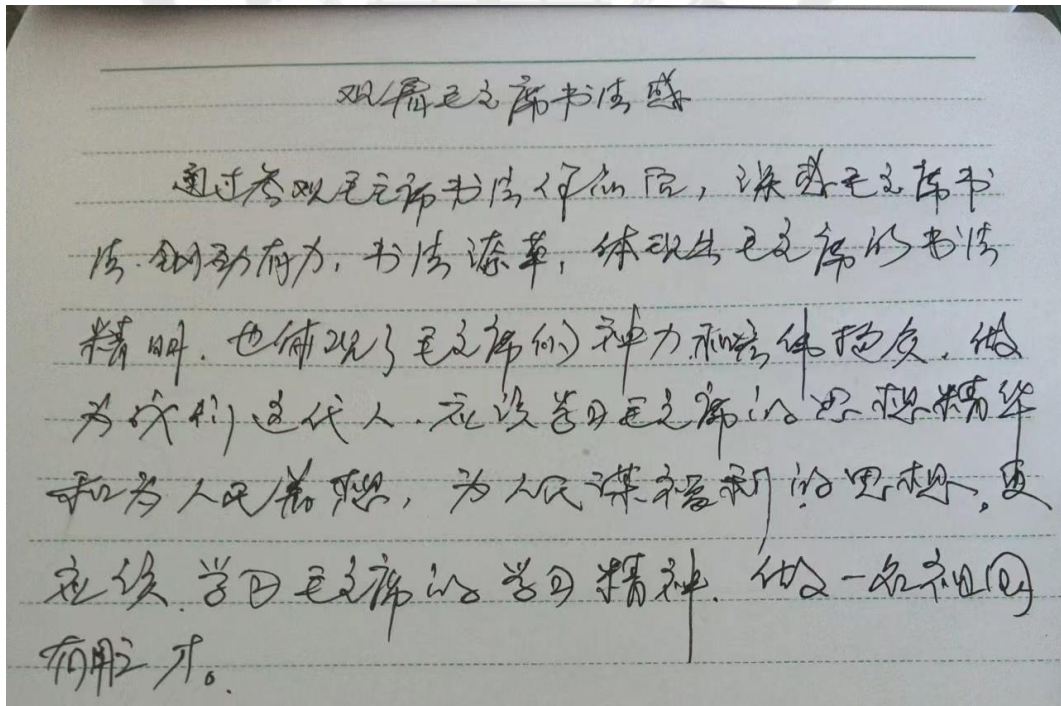 观看毛主席书法感
通过参观毛主席书法作品后，深感毛主席书
法.钢劲有力，书法潦草，体现出毛主席的书法
精明.也体现了毛主席的神力和伟，做
为我们这代人.应该学习毛主席的思想精华
和为人民着想，为人民谋福利的思想。更
应该.学习毛主席的学习精神.做一名祖国
有用之才。